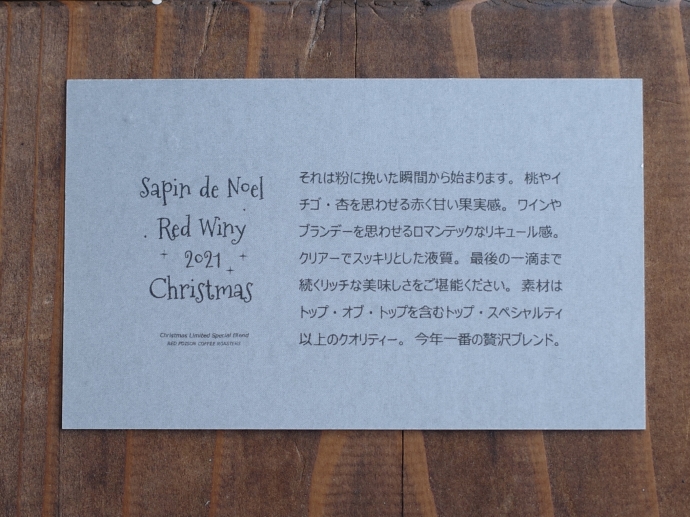 Sapin de Noel
Red Winy
2021
Christmas
Christmas Limited Special Blend
RED POISON COFFEE ROASTERS
それは粉に挽いた瞬間から始まります。 桃やイ
チゴ・杏を思わせる赤く甘い果実感。 ワインや
ブランデーを思わせるロマンテックなリキュール感。
クリアーでスッキリとした液質。 最後の一滴まで
続くリッチな美味しさをご堪能ください。 素材は
トップ・オブ・トップを含むトップ・スペシャルティ
以上のクオリティー。 今年一番の贅沢ブレンド。